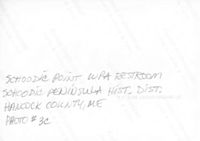 SCHOODIC POINT WPA RESTROOM
SCHOODIC PENINSULA HIST. DIST.
HANCOCK COUNTY, ME
PHOTO # 3C